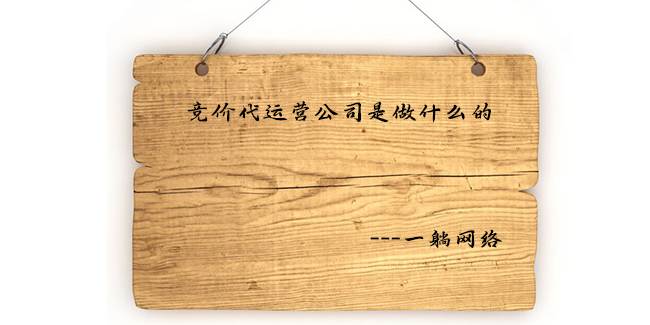 竞价代运营公司是做什么的
---一躺网络